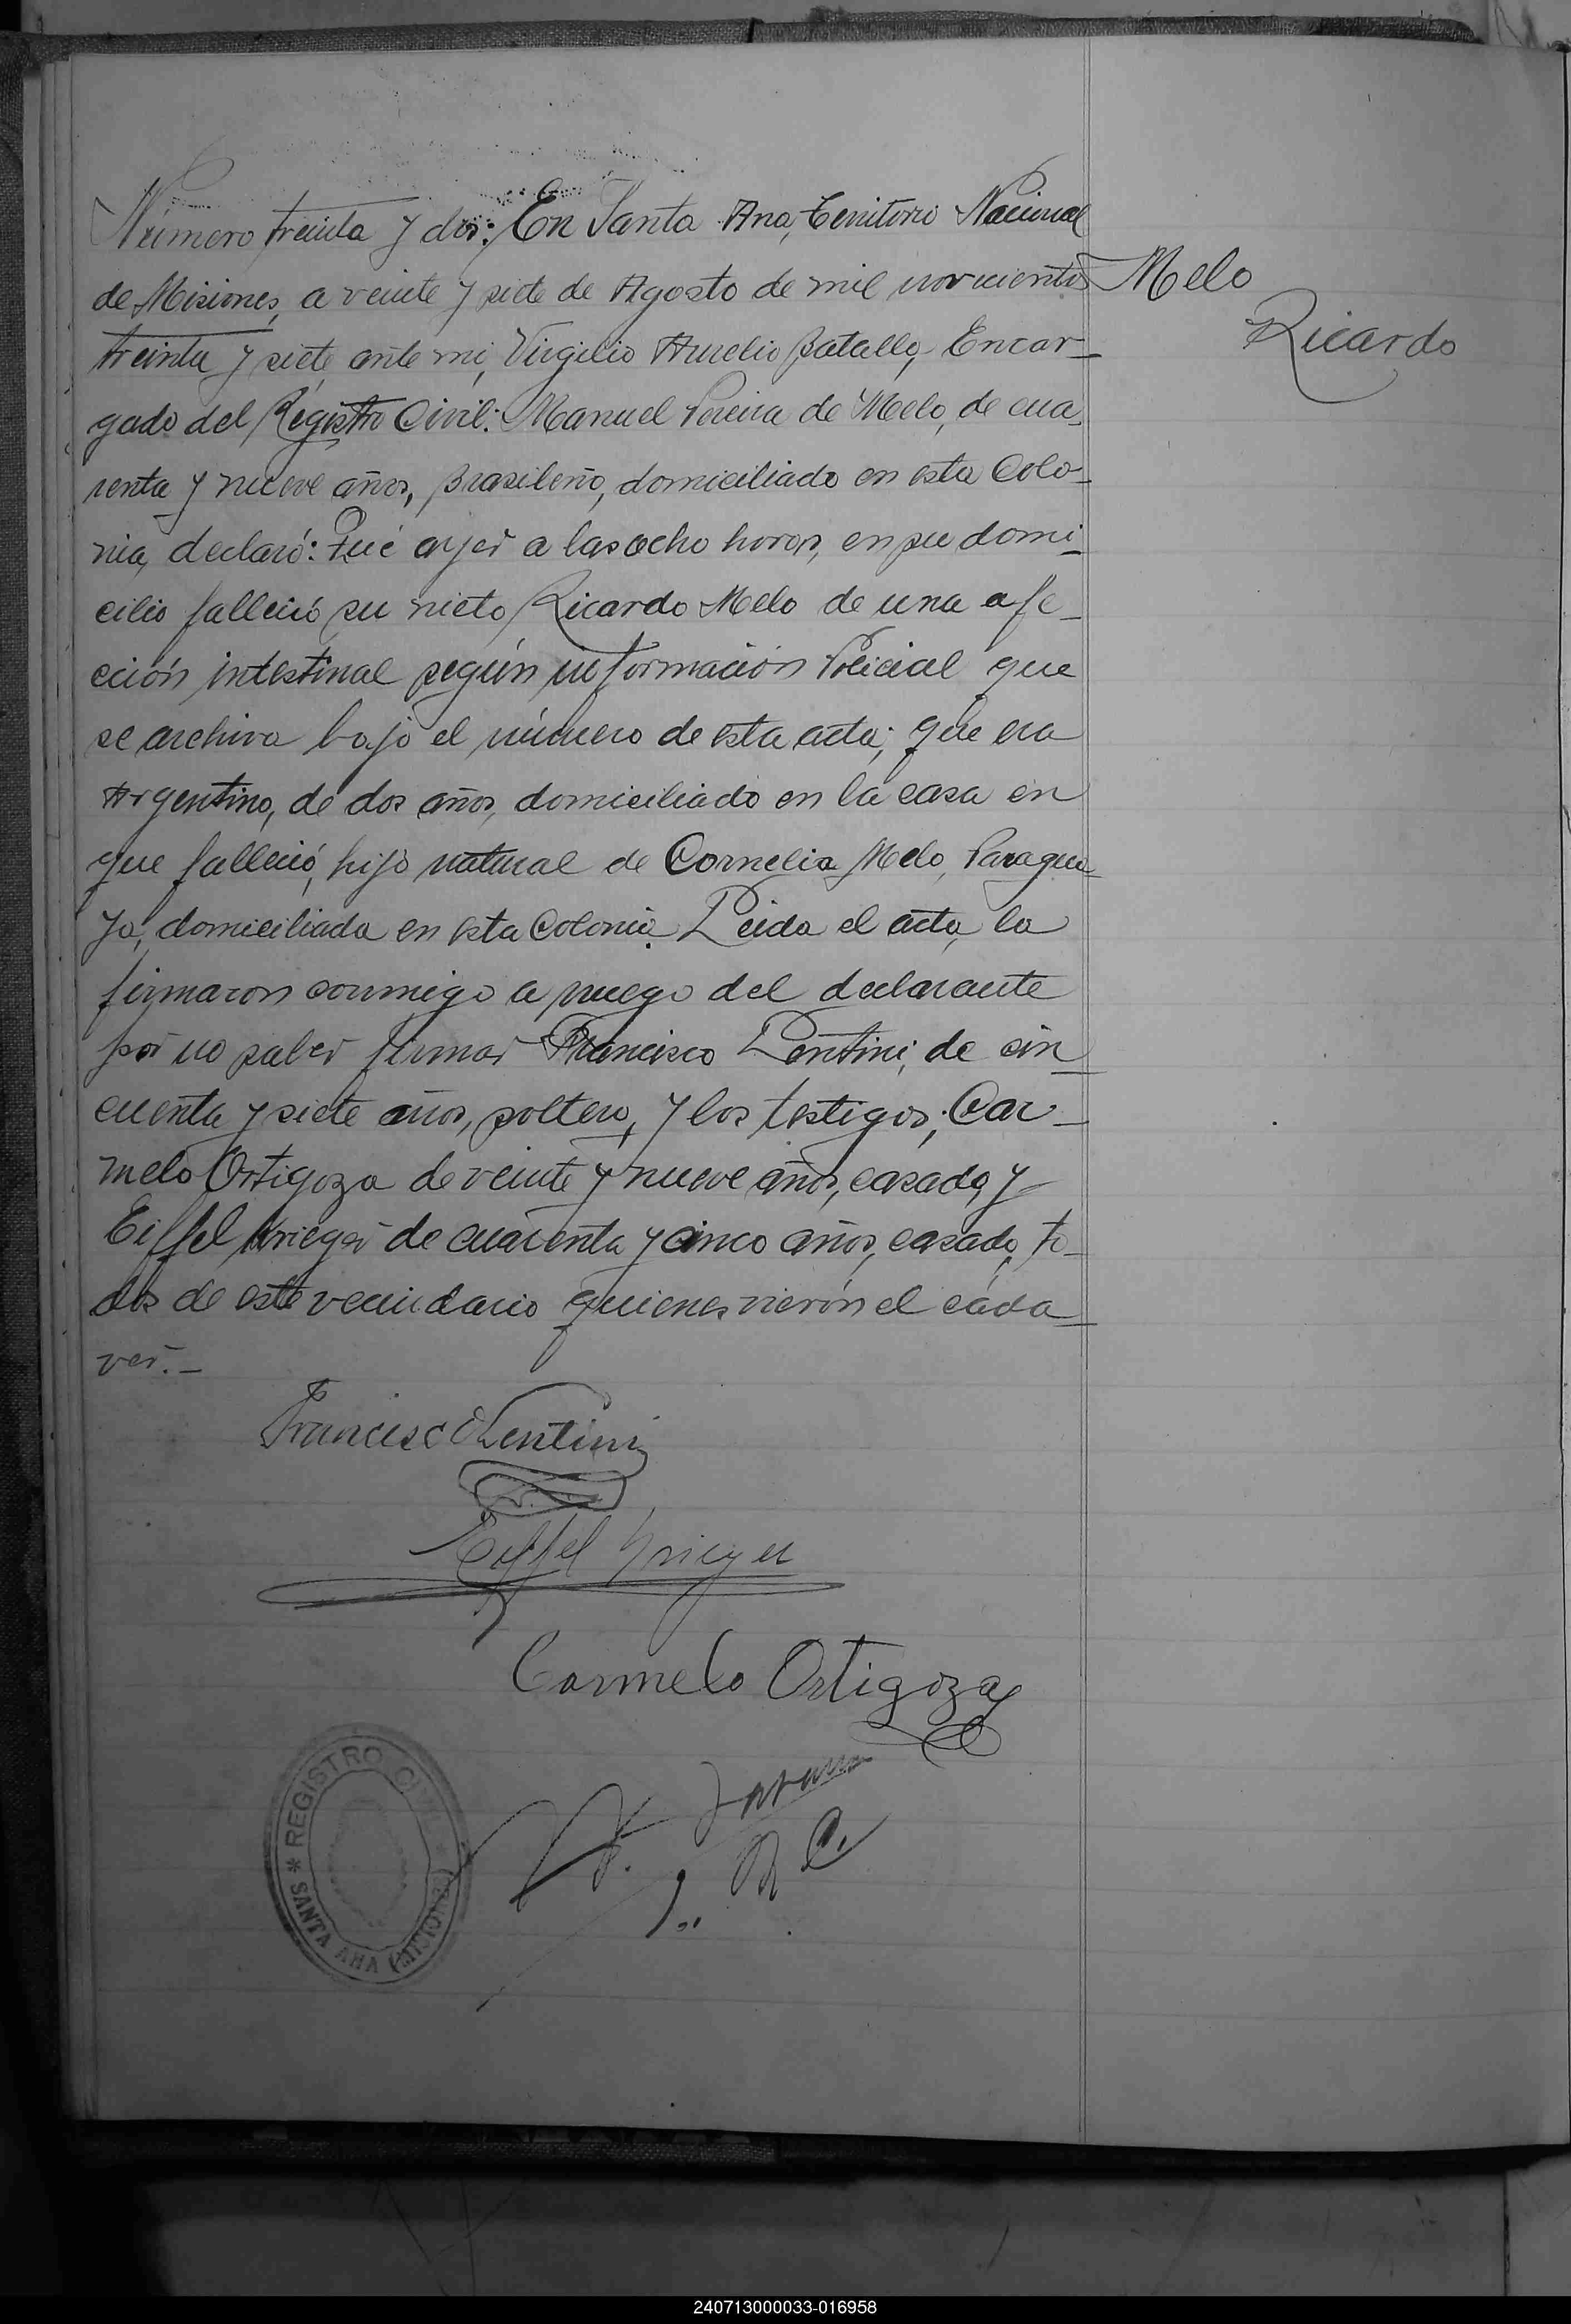 Número treinta y dos: En Santa Ana, Territorio Nacional
de Misiones, a veinte y siete de Agosto de mil novecientos
treinta y siete ante mi, Virgilio Aurelio Batalla, Encar-
gado del Registro Civil: Manuel Pereira de Melo, de cua-
renta y nueve años, Brasileño, domiciliado en esta Colo-
nia, declaró: Que ayer a las ocho horas, en su domi-
cilio falleció su nieto Ricardo Melo de una afe-
cción intestinal según información Policial que
se archiva bajo el número de esta acta; que era
Argentino, de dos años, domiciliado en la casa en
que falleció, hijo natural de Cornelia Melo, Paragua-
ya, domiciliada en esta Colonia. Leida el acta, la
firmaron conmigo a ruego del declarante
por no saber firmar Francisco Lentini, de cin-
cuenta y siete años, soltero, y los testigos; Car-
melo Ortigoza de veinte y nueve años, casado, y
Eiffel Krieger de cuarenta y cinco años, casado, to-
dos de este vecindario quienes vieron el cáda-
ver.-
Melo
Ricardo
Francisco Lentini
Eiffel Krieger
Carmelo Ortigoza
REGISTRO CIVIL
* SANTA ANA (MISIONES)
240713000033-016958